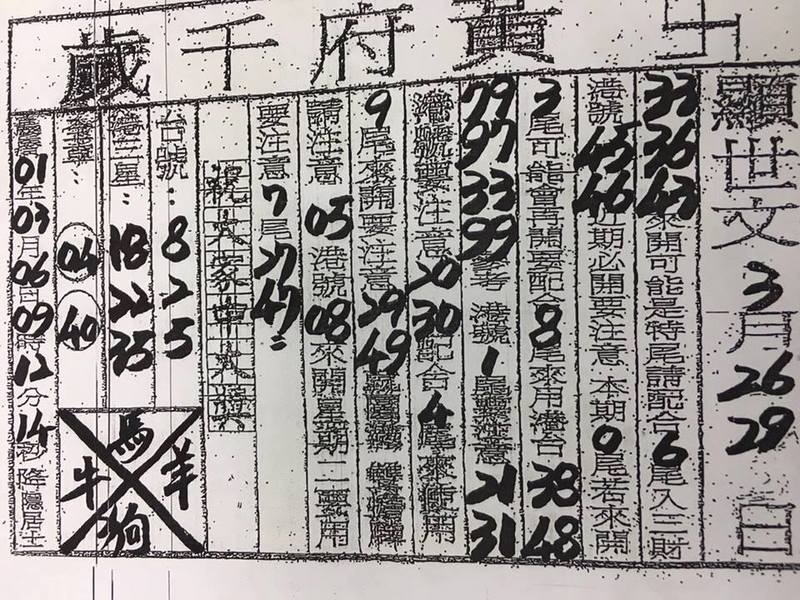 黃府千歲
顯世文3月26 29日
33 36 43來開可能是特尾請配合6尾入三財
港號45 46近期必開要注意本期0尾若來開
3尾可能會再開要配合8尾來用港台38 48
79 97 33 99參考港號1尾要注意21 31
港號要注意20 30配合4尾來用
9尾來開要注意29 49
請注意05港號08來開星期二要用
要注意7尾27 47=
祝大家中大獎
台號:8 2 5
港三星:18 22 35
04 40
馬羊狗牛
01年03月06日09時12分14秒降隱居士